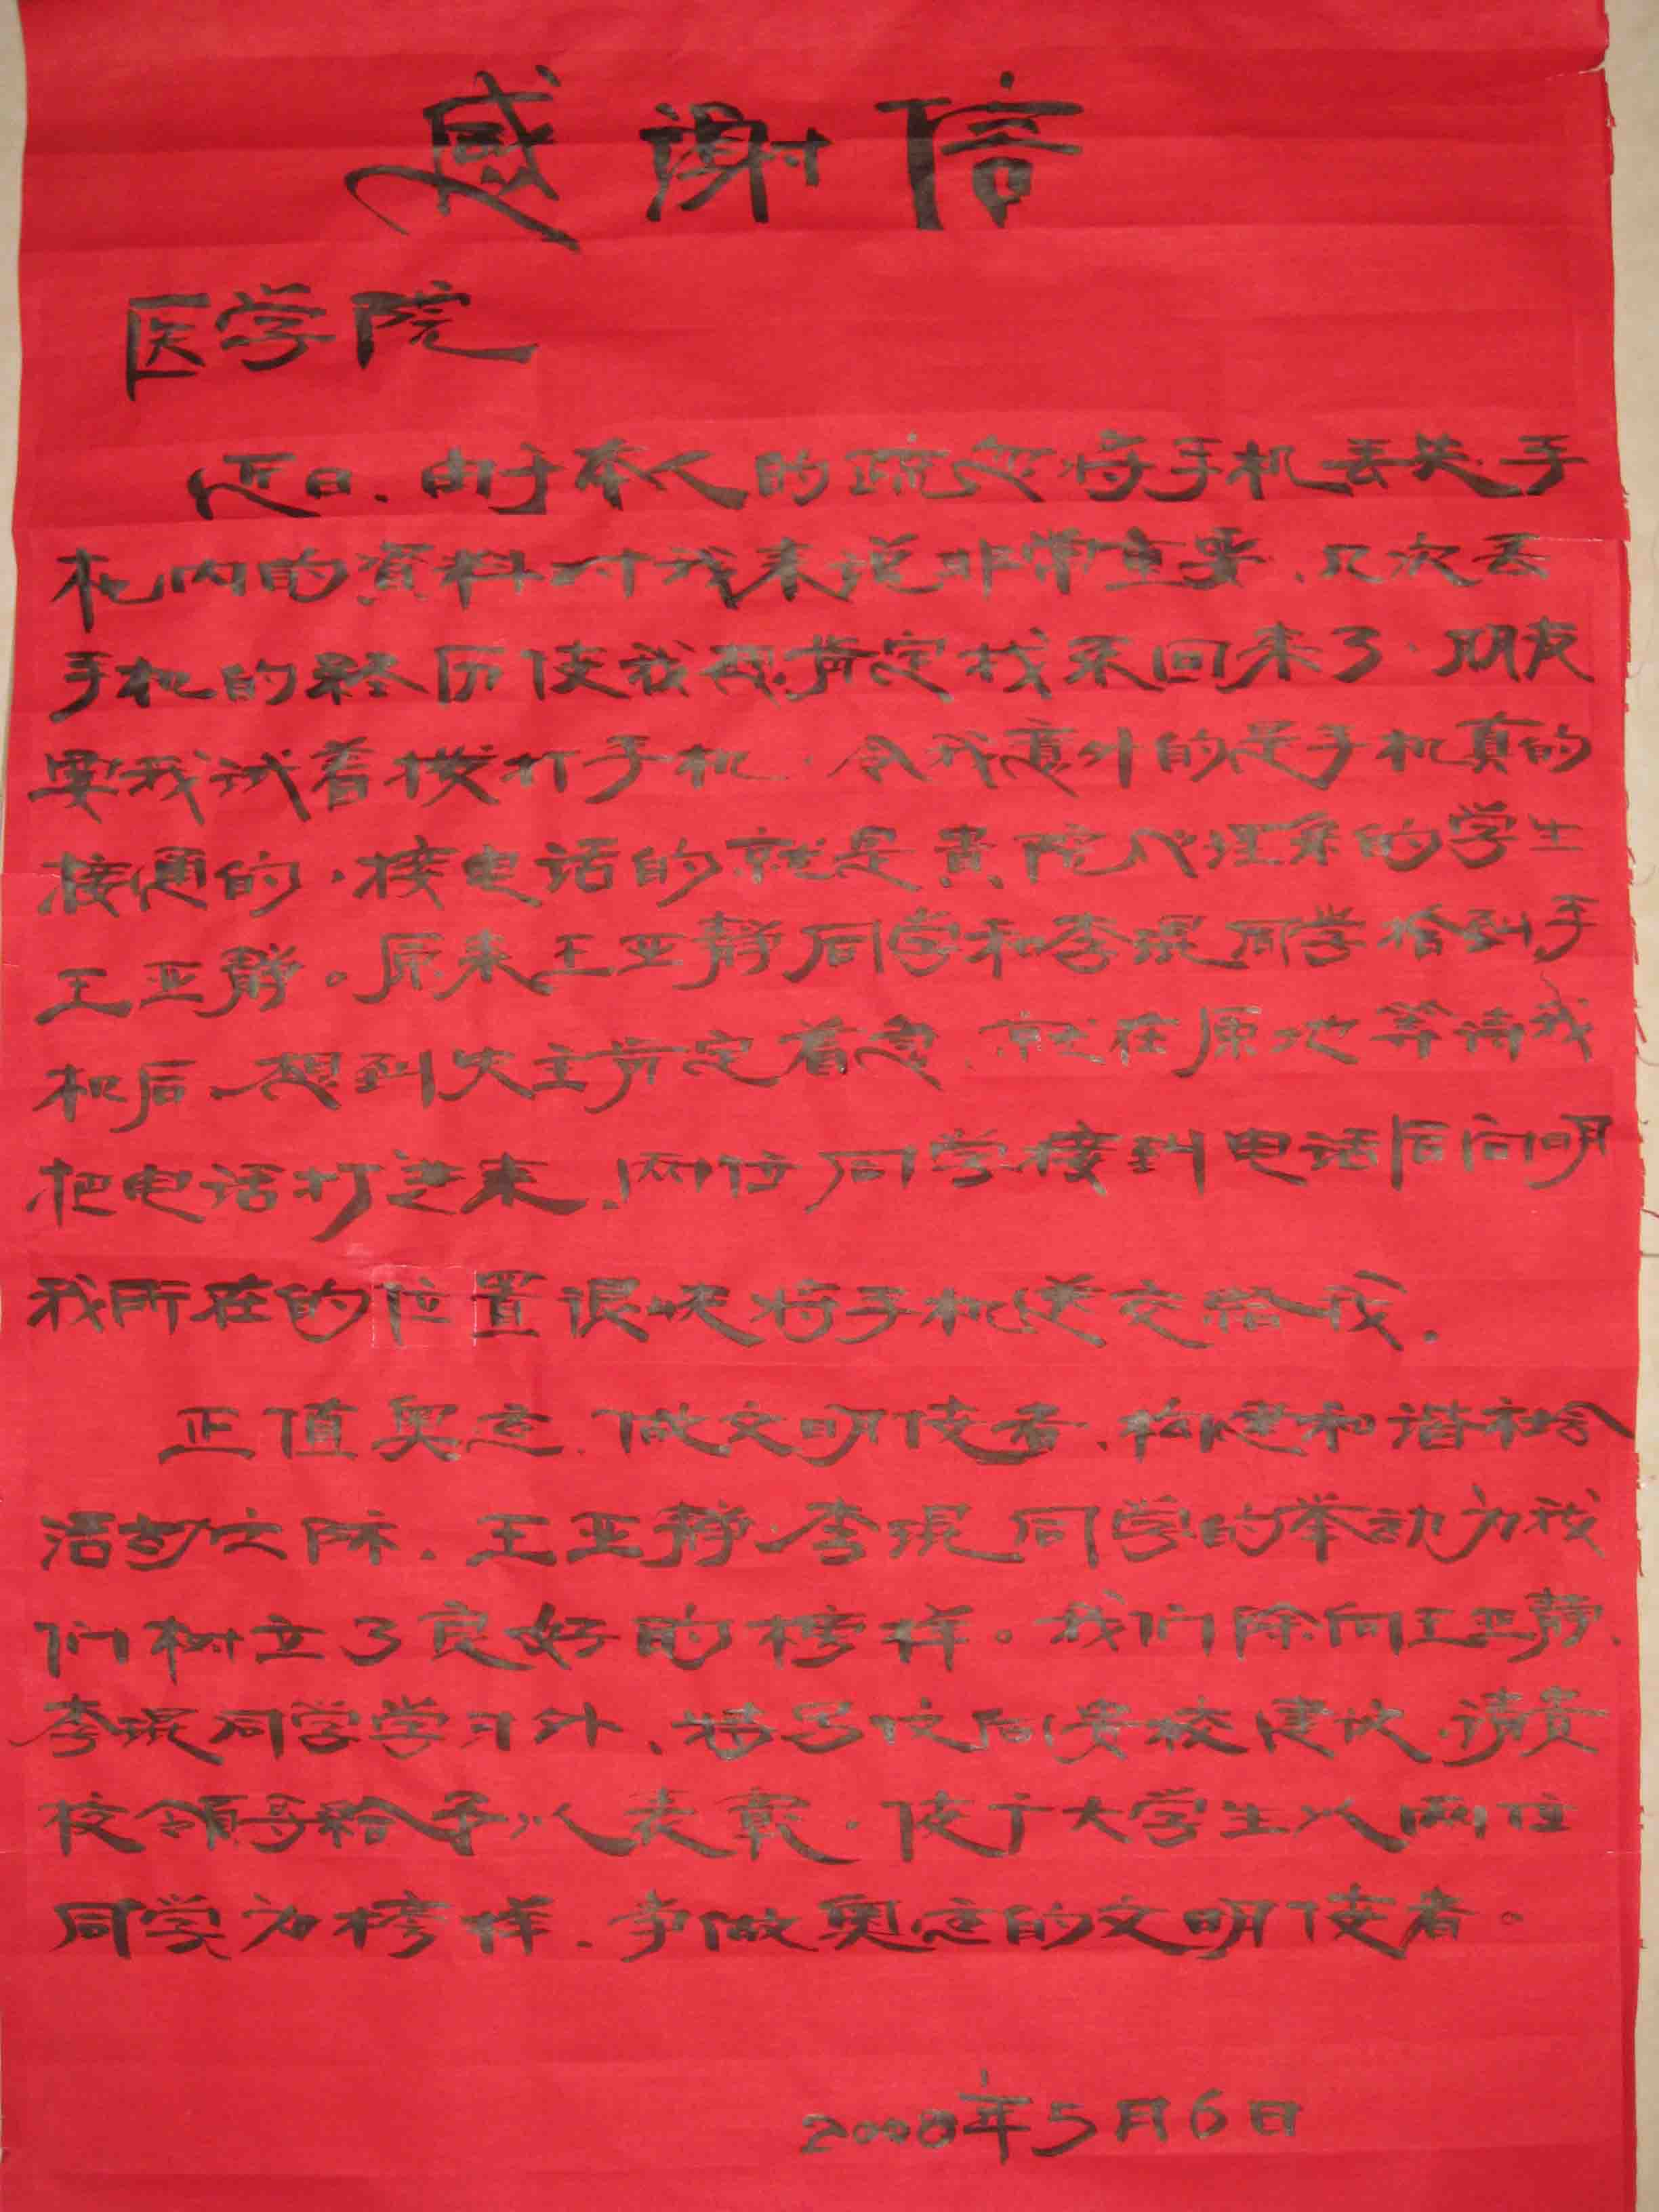 感谢信
医学院
近日、由于本人的疏忽将手机丢失、手
机内的资料对我来说非常重要、几次丢
手机的经历使我想肯定找不回来了、朋友
要我试着拨打手机、令我意外的是手机真的
接通的、接电话的就是贵院心理系的学生
王亚静。原来王亚静同学和李琨同学拾到手
机后、想到失主肯定着急、就在原地等待我
把电话打进来、两位同学接到电话后问明
我所在的位置很快将手机送交给我、
正值奥运、做文明使者、构建和谐社会
活动之际、王亚静、李琨同学的举动为我
们树立了良好的榜样。我们除向王亚静、
李琨同学学习外、特写信向贵校建议、请贵
校领导给予以表彰、使广大学生以两位
同学为榜样、争做奥运的文明使者。
2008年5月6日